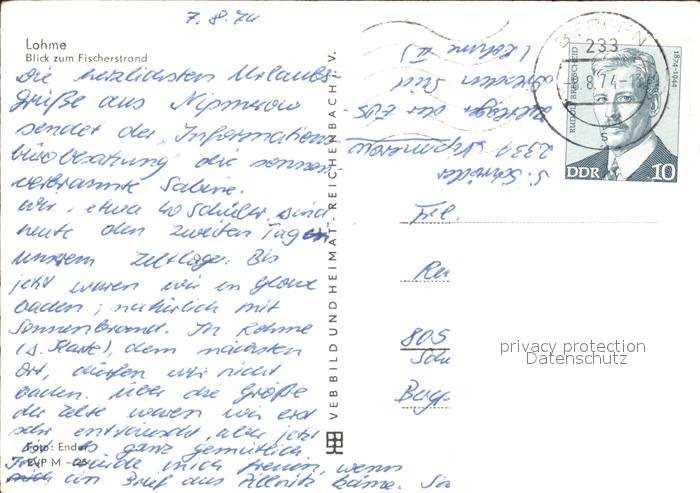 7.8.74
Lohme
Blick zum Fischerstrand
Die herzlichsten Urlaubs-
grüße aus Nipmerow
sendet der "Informations
bürobesatzung" die sonnen
verbrannte Sabine.
Wir, etwa 40 Schüler sind
heute den zweiten Tag in
unserem Zeltlager. Bis
jetzt waren wir in Glowe
baden; natürlich mit
Sonnenbrand. In Lohme
(s. Karte), dem nächsten
Ort, dürfen wir nicht
baden. Über die Größe
der Zelte waren wir erst
sehr enttäuscht, aber jetzt
ist es ganz gemütlich
würde mich freuen, wenn
ein Brief aus Pillnitz käme.
Foto: Ender
EVP M -,25
VEB BILD UND HEIMAT · REICHENBACH I. V.
S. Schröder
2331 Nipmerow
Zeltlager der EOS
Dresden Süd
(Lohme II)
BERGEN
233
8.74
RUDOLF BREITSCHEID
1874-1944
DDR 10
Frl.
805
privacy protection
Datenschutz